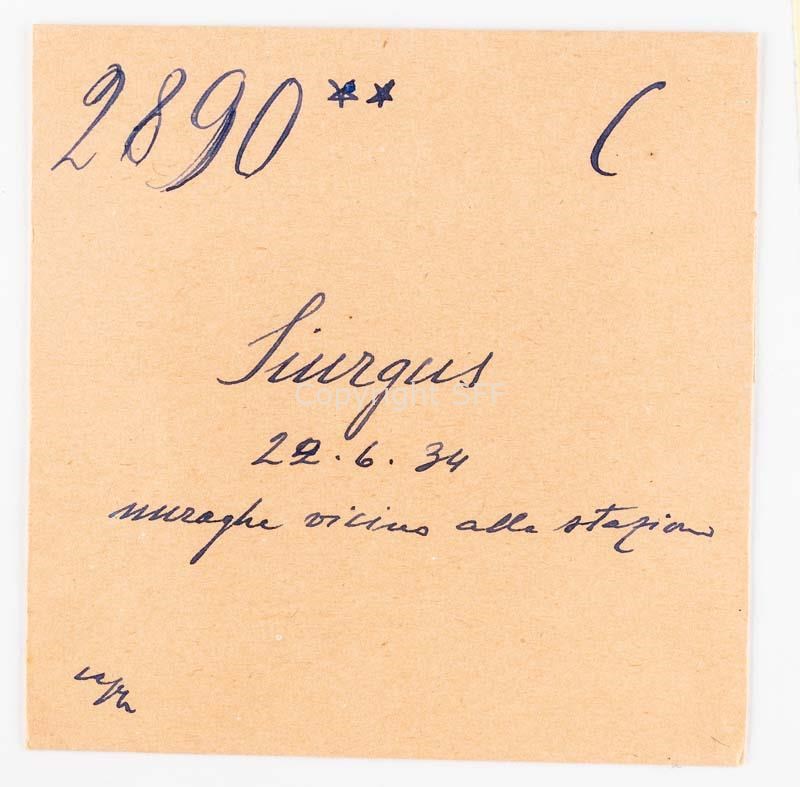 2890** C
Siurgus
Copyright SFF
22.6.34
nuraghe vicino alla stazione